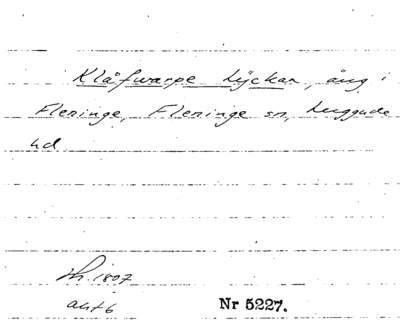 Klåfwarpe Lyckan, äng i
Fleninge, Fleninge sn, Luggude
hd
Lh. 1807
akt 6
Nr 5227.